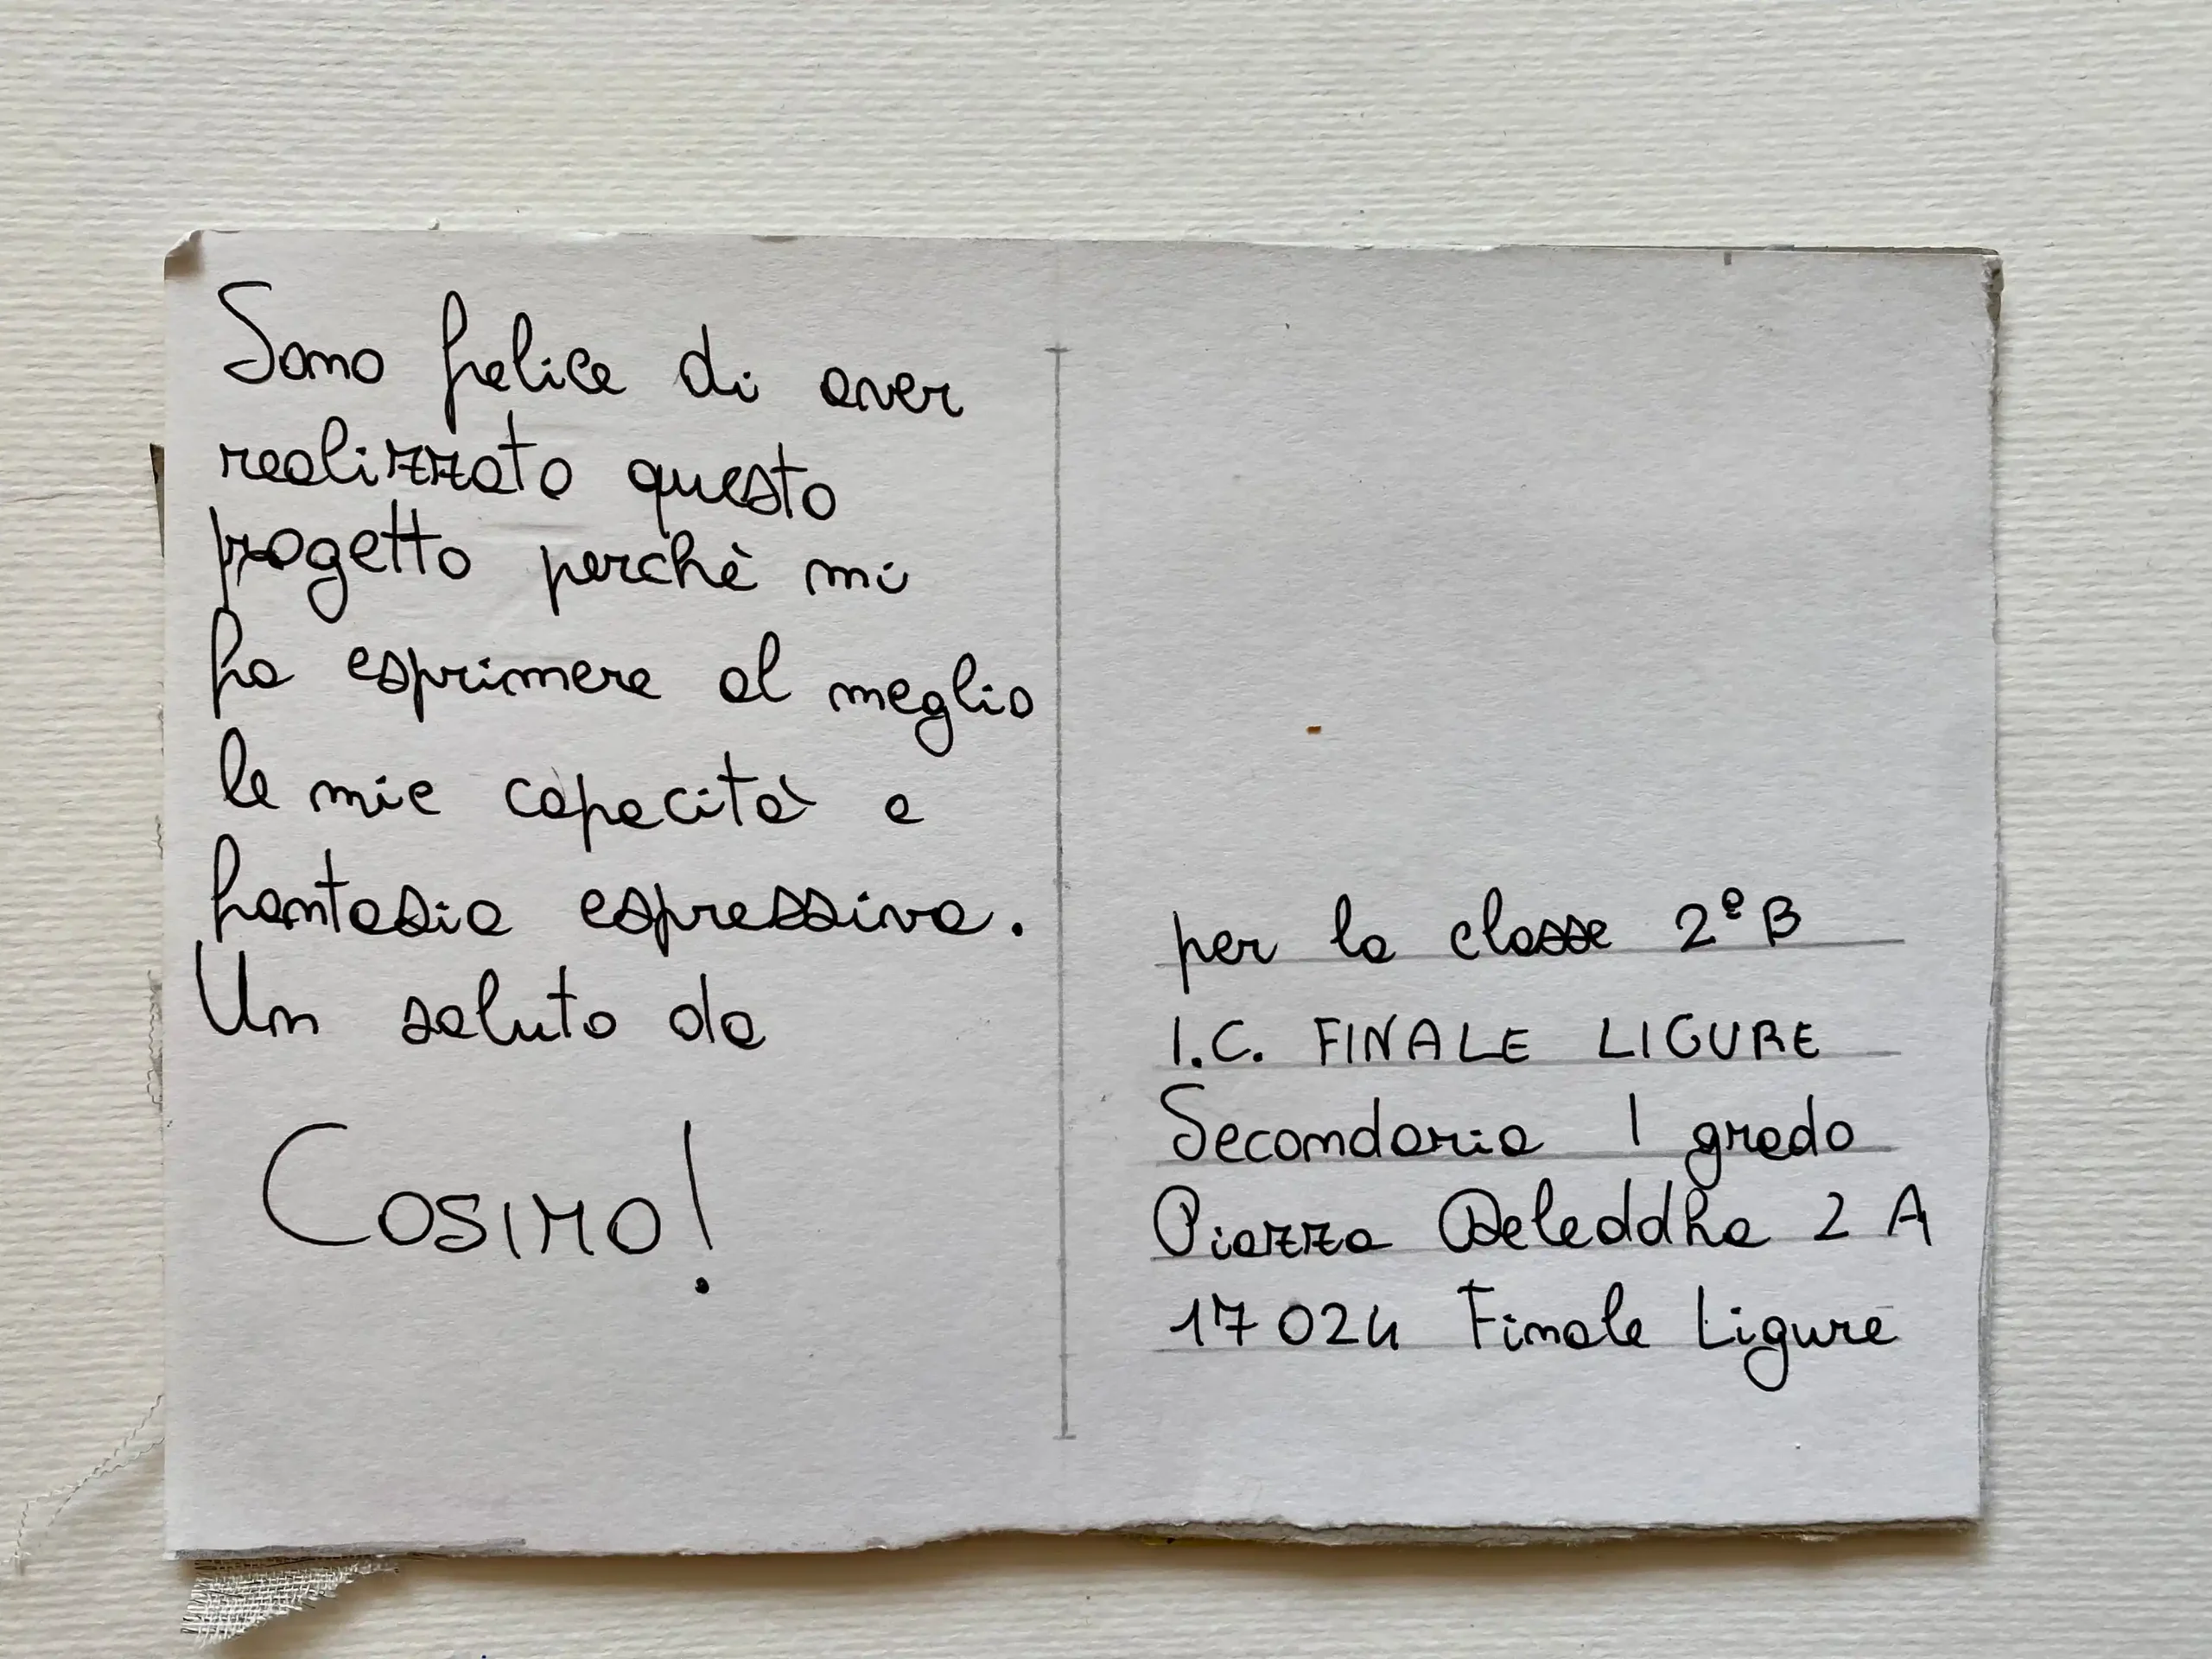 Sono felice di aver
realizzato questo
progetto perchè mi
fa esprimere al meglio
le mie capacità e
fantasia espressiva.
Un saluto da
COSIMO!
per la classe 2ª B
I.C. FINALE LIGURE
Secondaria I grado
Piazza Deleddha 2 A
17024 Finale Ligure